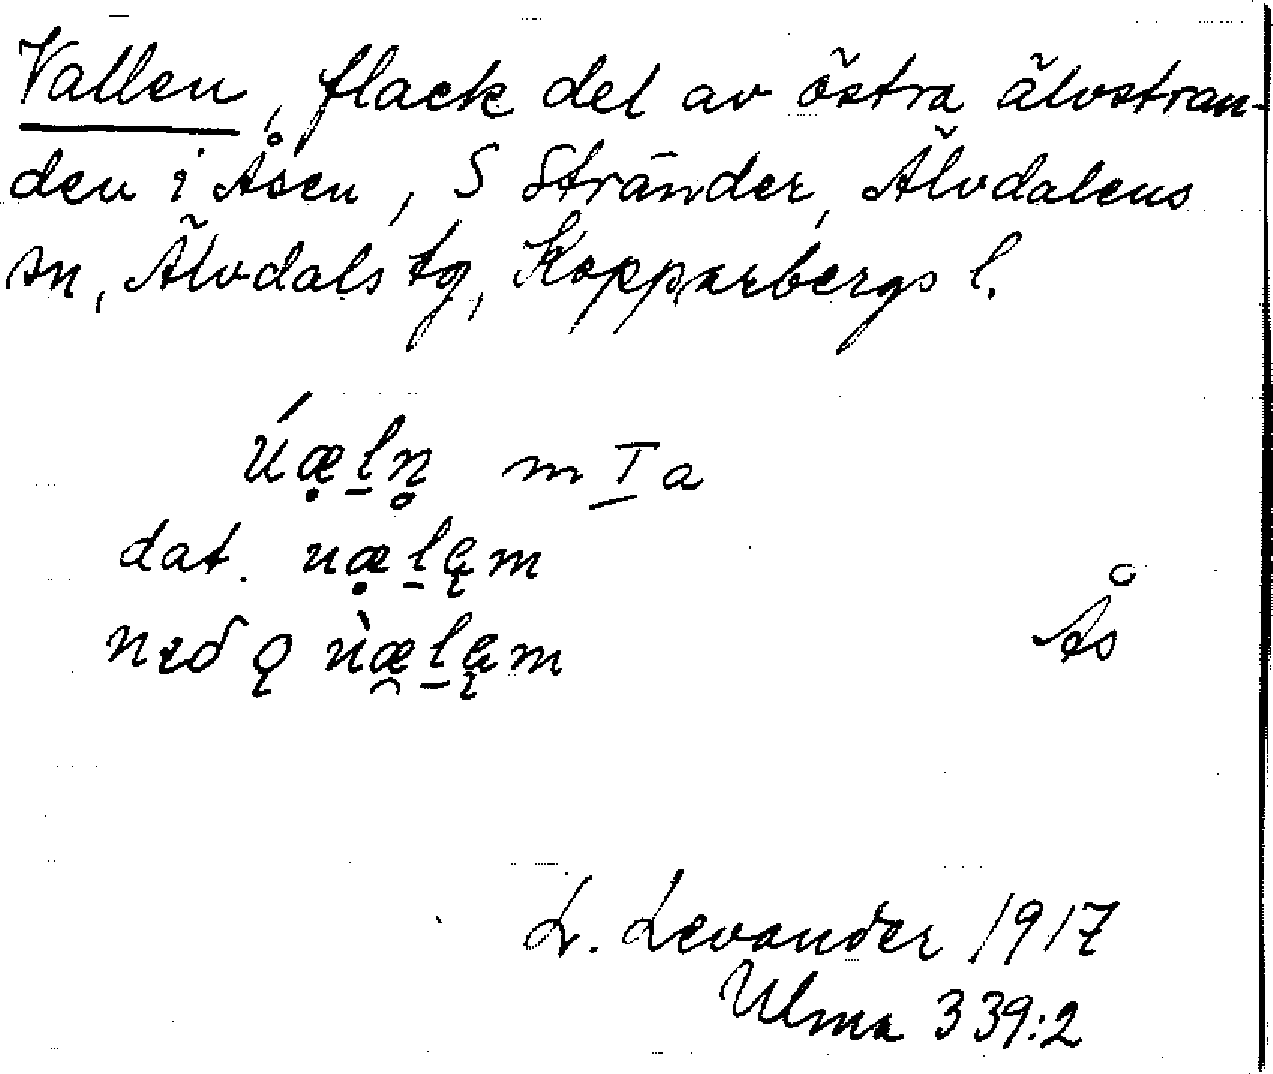 Vallen, flack del av östra älvstran-
den i Åsen, S Stränder, Älvdalens
sn, Älvdals tg, Kopparbergs l.
ú̯æ̣l̠n̥ m I a
dat. uæ̣l̠ę̣m
neð ǫ ùæ̯l̠ę̣m
Ås
L. Levander 1917
Ulma 339:2